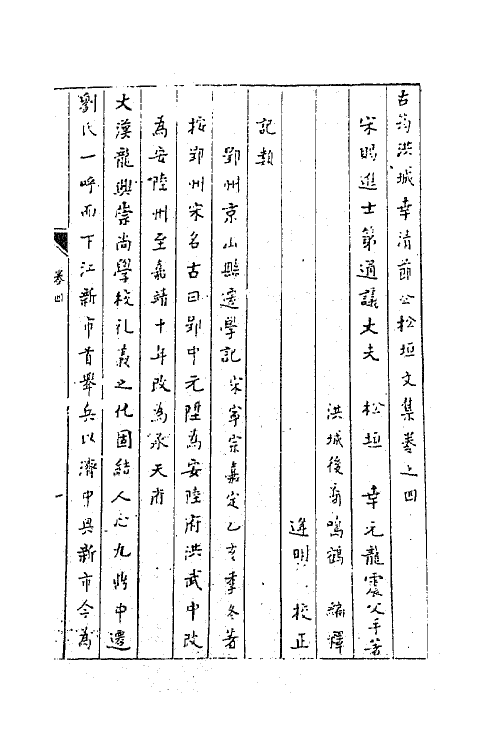 古筠洪城幸清節公松垣文集卷之四
宋賜進士第通議大夫　松垣　幸元龍震父手著
洪城後裔鳴鶴　編釋
逢明　校正
記類
郢州京山縣遷學記宋寧宗嘉定乙亥季冬著
按郢州宋名古曰郢中元陞為安陸府洪武中改
為安陸州至嘉靖十年改為承天府
大漢龍興崇尚學校礼義之化固結人心九鼎中遷
劉氏一呼而下江新市首舉兵以濟中興新市今為
卷四
一